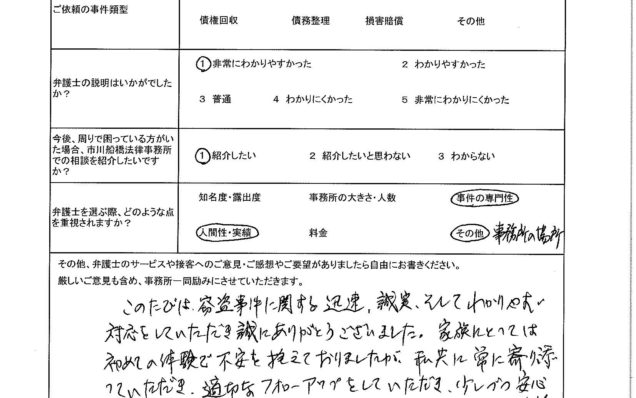 ご依頼の事件類型
債権回収 債務整理 損害賠償 その他
弁護士の説明はいかがでした
か？
1 非常にわかりやすかった 2 わかりやすかった
3 普通 4 わかりにくかった 5 非常にわかりにくかった
今後、周りで困っている方がい
た場合、市川船橋法律事務所
での相談を紹介したいです
か？
1 紹介したい 2 紹介したいと思わない 3 わからない
弁護士を選ぶ際、どのような点
を重視されますか？
知名度・露出度 事務所の大きさ・人数 事件の専門性
人間性・実績 料金 その他 事務所の場所
その他、弁護士のサービスや接客へのご意見・ご感想やご要望がありましたら自由にお書きください。
厳しいご意見も含め、事務所一同励みにさせていただきます。
このたびは窃盗事件に関する迅速、誠実、そしてわかりやすい
対応をしていただき誠にありがとうございました。家族にとっては
初めての体験で不安を抱えておりましたが、私共に常に寄り添
っていただき、適切なフォローアップをしていただき、少しづつ安心